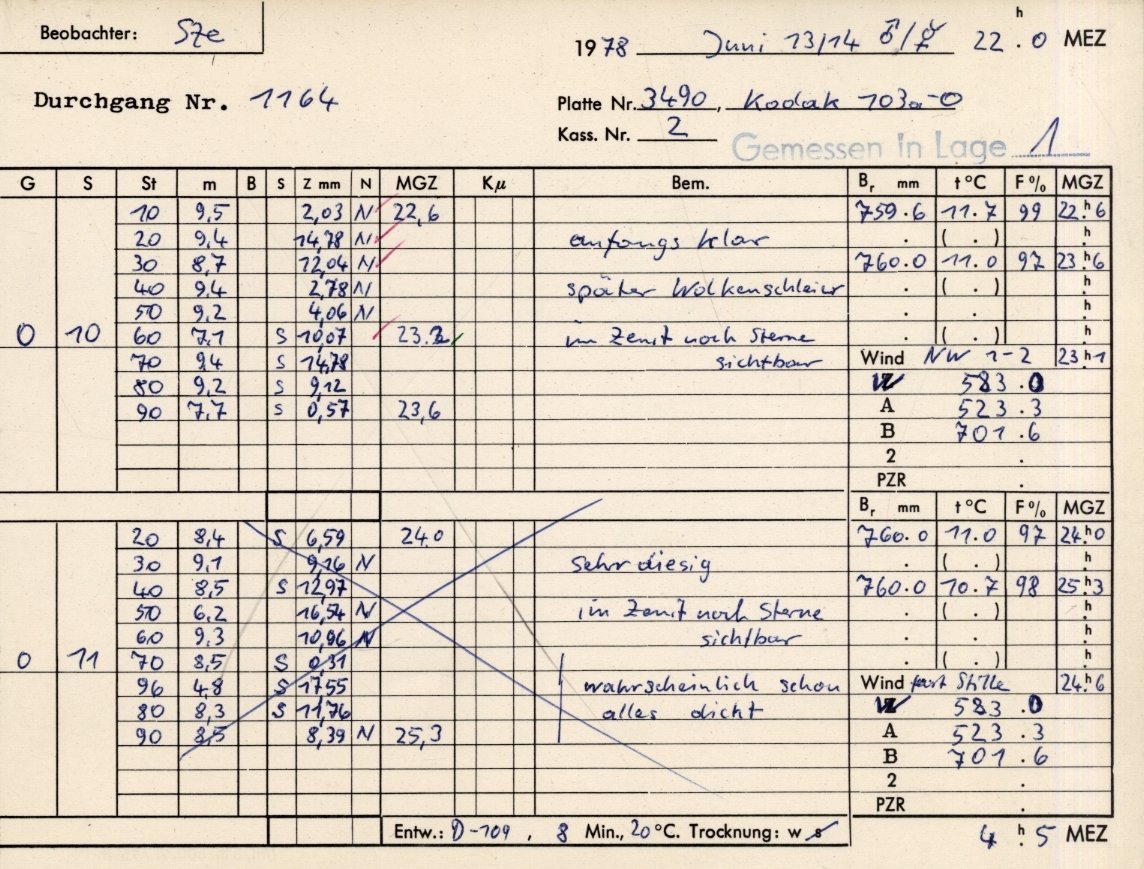 Beobachter: Sze
h
1978 Juni 13/14 ♂/☿ 22.0 MEZ
Durchgang Nr. 1164
Platte Nr. 3490, Kodak 103a-O
Kass. Nr. 2
Gemessen in Lage 1
G S St m B S Z mm N MGZ Kμ Bem. Br mm t°C F% MGZ
10 9,5 2,03 N 22,6 759.6 11.7 99 22h6
20 9,4 14,78 N anfangs klar . ( . ) h
30 8,7 12,04 N 760.0 11.0 97 23h6
40 9,4 2,78 N später Wolkenschleier . ( . ) h
50 9,2 4,06 N . . h
0 10 60 7,1 S 10,07 23.2 im Zenit noch Sterne . ( . ) h
70 9,4 S 14,78 sichtbar Wind NW 1-2 23h1
80 9,2 S 9,12 583.0
90 7,7 S 0,57 23,6 A 523.3
B 701.6
2 .
PZR .
Br mm t°C F% MGZ
20 8,4 S 6,59 24.0 760.0 11.0 97 24h0
30 9,1 9,16 N sehr diesig . ( . ) h
40 8,5 S 12,97 760.0 10.7 98 25h3
50 6,2 16,54 N im Zenit noch Sterne . ( . ) h
60 9,3 10,96 N sichtbar . . h
0 11 70 8,5 S 0,31 . ( . ) h
96 4,8 S 17,55 wahrscheinlich schon Wind fast Stille 24h6
80 8,3 S 11,76 alles dicht 583.0
90 8,5 8,39 N 25,3 A 523.3
B 701.6
2 .
PZR .
Entw.: D-109, 8 Min., 20°C. Trocknung: w s
4h5 MEZ